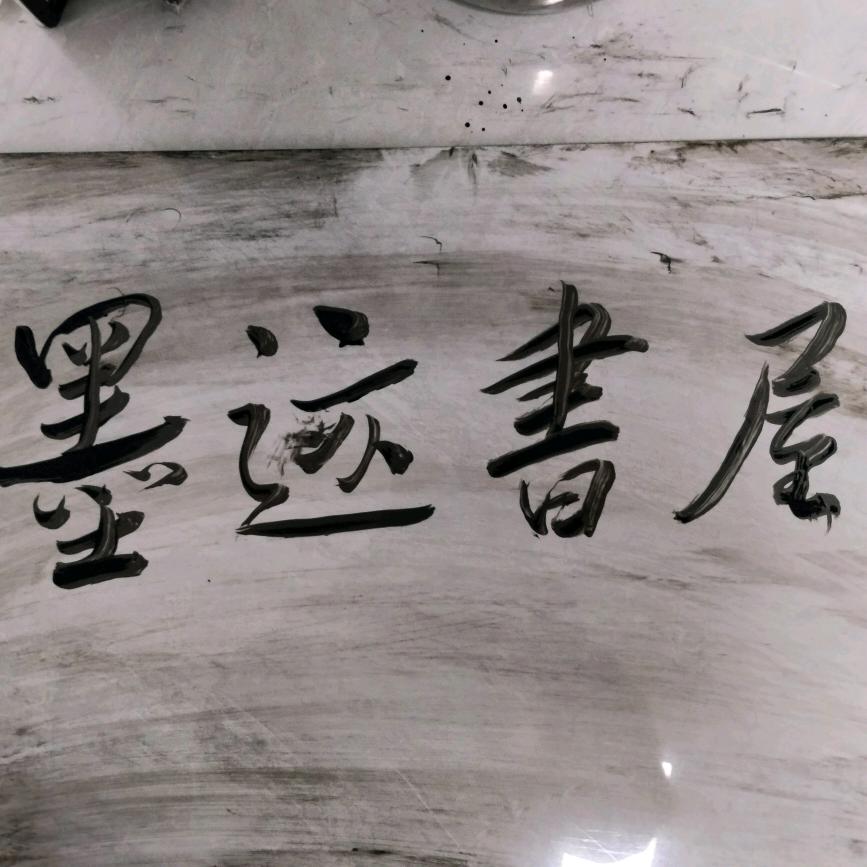 墨迹書屋